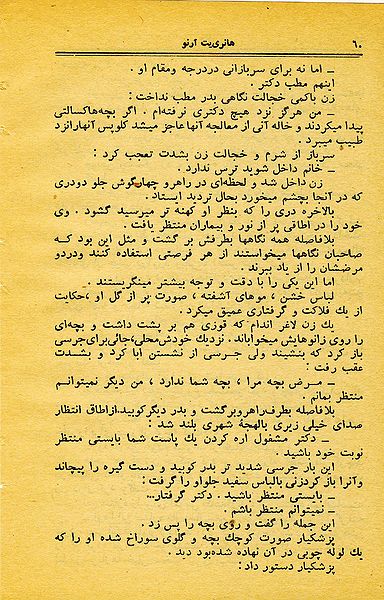 ۶۰ هانری‌یت آرنو
ـ اما نه برای سربازانی دردرجه ومقام او .
اینهم مطب دکتر .
زن باکمی خجالت نگاهی بدر مطب نداخت :
ـ من هرگز نزد هیچ دکتری نرفته‌ام . اگر بچه‌هاکسالتی
پیدا میکردند و خاله آنی از معالجه آنها عاجز میشد کلویس آنهارانزد
طبیب میبرد .
سرباز از شرم و خجالت زن بشدت تعجب کرد :
ـ خانم داخل شوید ترس ندارد .
زن داخل شد و لحظه‌ای در راهرو چهارگوش جلو دودری
که در آنجا بچشم میخورد بحال تردید ایستاد .
بالاخره دری را که بنظر او کهنه تر میرسید گشود . وی
خود را در اطاقی پر از نور و بیماران منتظر یافت .
بلافاصله همه نگاهها بطرفش بر گشت و مثل این بود کــه
صاحبان نگاهها میخواستند از هر فرصتی استفاده کنند ودردو
مرضشان را از یاد ببرند .
اما این یکی را با دقت و توجه بیشتر مینگریستند .
لباس خشن ، موهای آشفته ، صورت پر از گل او ،حکایت
از یك فلاکت و گرفتاری عمیق میکرد .
یك زن لاغر اندام که قوزی هم بر پشت داشت و بچه‌ای
را روی زانوهایش میخواباند . نزدیك خودش‌محلی،جائی‌برای‌جرسی
باز کرد که بنشیند ولی جرسی از نشستن ابا کرد و بشدت
عقب رفت :
ـ مــرض بچه مرا ، بچه شما ندارد ، من دیگر نمیتوانــم
منتظر بمانم .
بلافاصله بطرف‌راهروبرگشت و بدر دیگرکوبید.ازاطاق انتظار
صدای خیلی زیری باالهجهٔ شهری بلند شد :
ـ دکتر مشغول اره کردن یك پاست شما بایستی منتظر
نوبت خود باشید .
این بار جرسی شدید تر بدر کوبید و دست گیره را پیچاند
وآنرا باز کردزنی بالباس سفید جلواو را گرفت :
ـ بایستی منتظر باشید . دکتر گرفتار...
ـ نمیتوانم منتظر باشم .
این جمله را گفت و روی بچه را پس زد .
پزشکیار صورت کوچك بچه و گلوی سوراخ شده او را که
یك لوله چوبی در آن نهاده شده‌بود دید .
پزشکیار دستور داد :